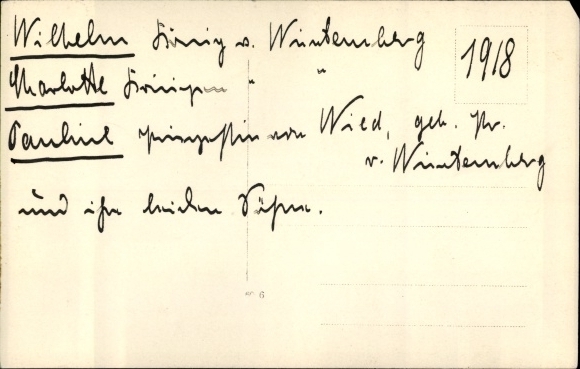 Wilhelm König v. Württemberg
1918
Charlotte Königin " "
Pauline Prinzessin von Wied, geb. Pr.
v. Württemberg
und ihre beiden Söhne.
6